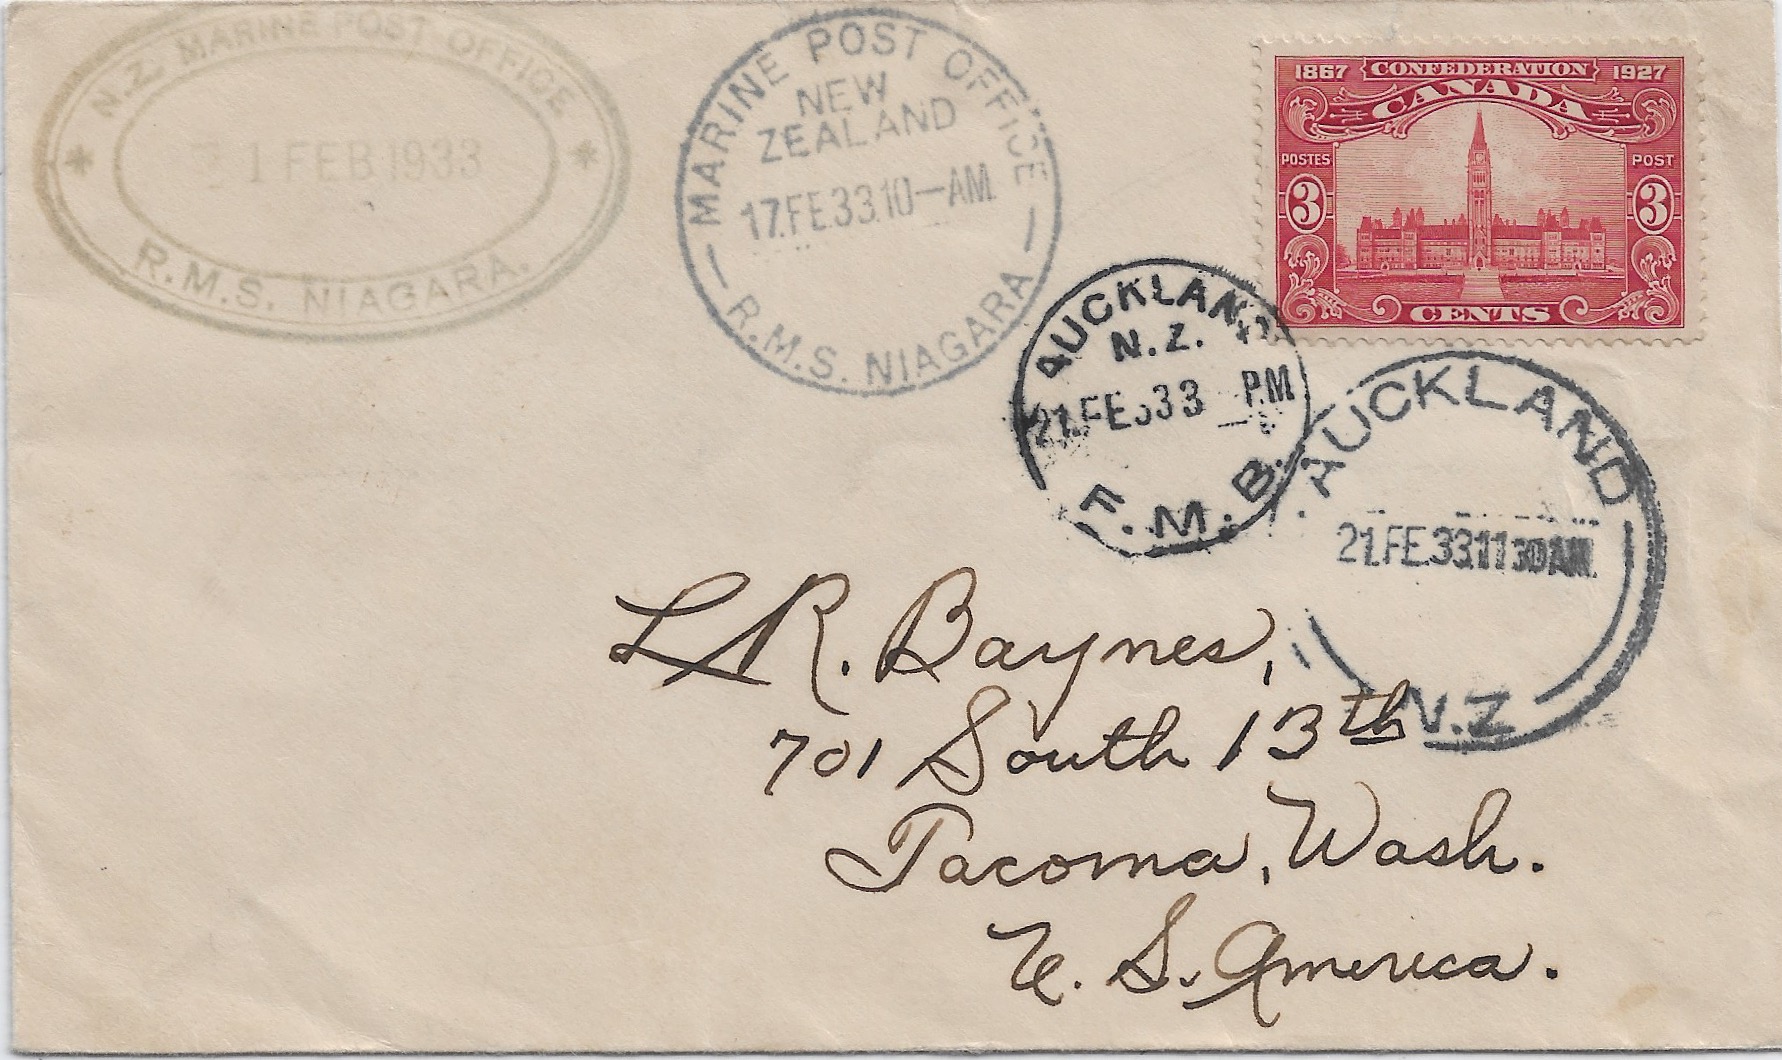 N.Z. MARINE POST OFFICE
1 FEB 1933
R.M.S. NIAGARA.
MARINE POST OFFICE
NEW
ZEALAND
17.FE.33.10—AM.
R.M.S. NIAGARA
1867 CONFEDERATION 1927
CANADA
POSTES POST
3 3
CENTS
AUCKLAND
N.Z.
21.FE.33 PM
F.M.B.
AUCKLAND
21.FE.33.1130AM.
N.Z
L.R. Baynes,
701 South 13th
Tacoma, Wash.
U. S. America.